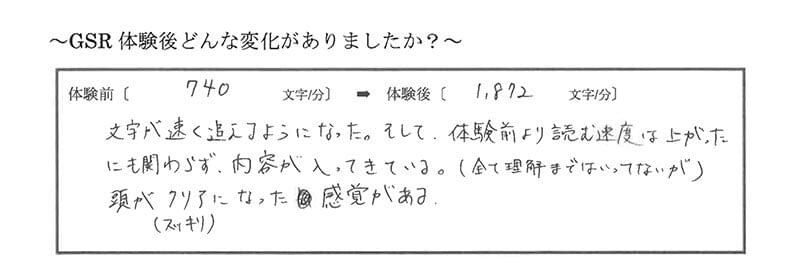 ～GSR 体験後どんな変化がありましたか？～
体験前〔 740 文字/分〕 ➡ 体験後〔 1,872 文字/分〕
文字が速く追えるようになった。そして、体験前より読む速度は上がった
にも関わらず、内容が入ってきている。(全て理解まではいってないが)
頭がクリアになった感覚がある
(スッキリ)